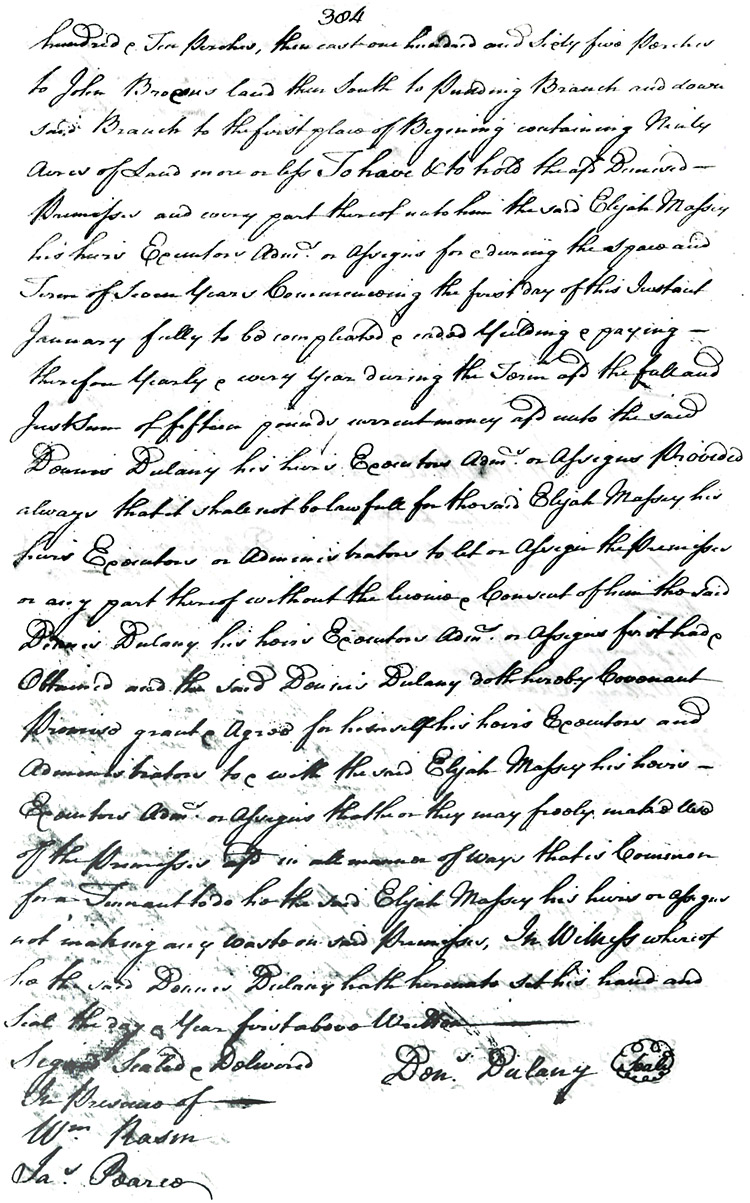 384
hundred & Ten Perches, then east one hundred and Sixty five Perches
to John Browns land then South to Pudding Branch and down
said Branch to the first place of Begining containing Ninty
Acres of Land more or less To have & to hold the afd Demised —
Premisses and every part thereof unto him the said Elijah Massey
his heirs Executors Admrs. or Assigns for & during the space and
Term of Seven Years Commencing the first day of this Instant
January fully to be compleated & ended Yeilding & paying —
therefore Yearly & every Year during the Term afd the full and
Just Sum of fifteen pounds current money afd unto the said
Dennis Dulany his heirs Executors Admrs. or Assigns Provided
always that it shall not be lawfull for the said Elijah Massey his
heirs Executors or Administrators to let or Assign the Premisses
or any part thereof without the licence & Consent of him the said
Dennis Dulany his heirs Executors Admrs. or Assigns first had &
Obtained and the said Dennis Dulany doth hereby Covenant
Promise grant & Agree for himself his heirs Executors and
Administrators to & with the said Elijah Massey his heirs —
Executors Admrs. or Assigns that he or they may freely make Use
of the Premisses afd in all manner of ways that is Common
for a Tennant to do he the said Elijah Massey his heirs or assigns
not making any waste on said Premisses, In Witness whereof
he the said Dennis Dulany hath hereunto set his hand and
Seal the day & Year first above Written
Signed Sealed & Delivered Dens. Dulany Seal
In Presence of
Wm Rasin
Jas. Pearce